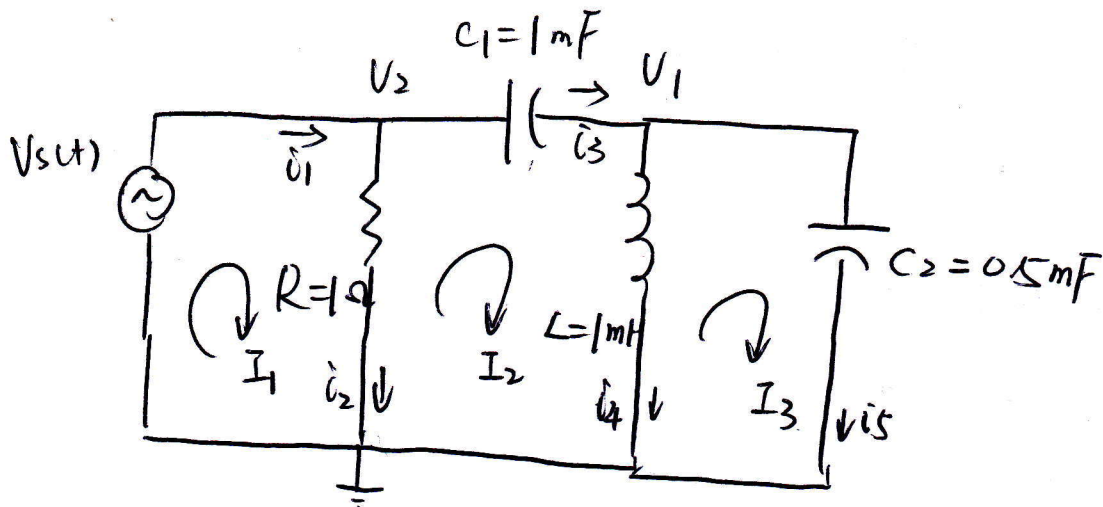 C1=1mF
V2
V1
Vs(t)
i1
i3
R=1Ω
L=1mH
C2=0.5mF
I1
i2
I2
i4
I3
i5